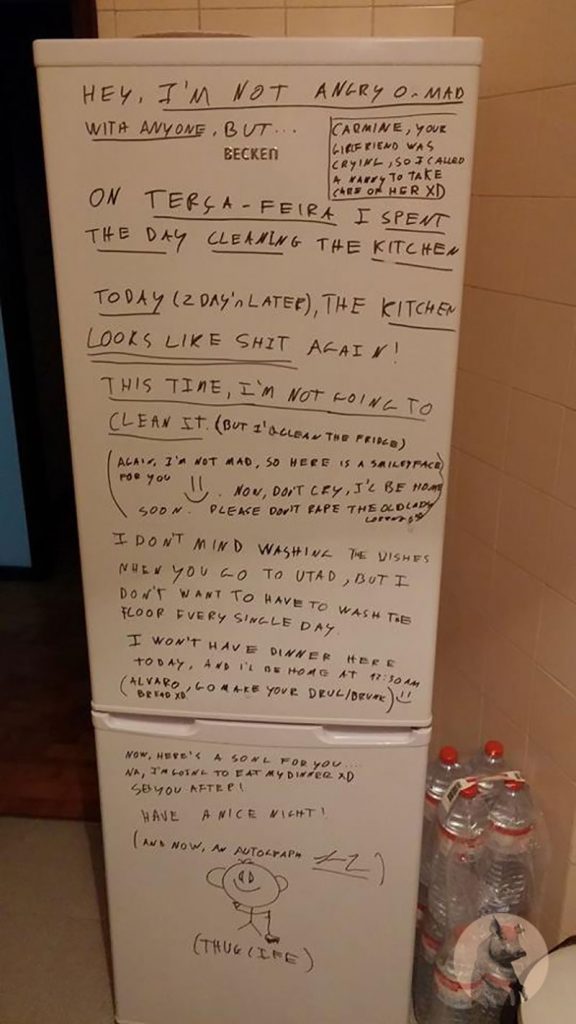 HEY, I'M NOT ANGRY O. MAD
WITH ANYONE, BUT...
BECKEN
CARMINE, YOUR
GIRLFRIEND WAS
CRYING, SO I CALLED
A NANNY TO TAKE
CARE OF HER XD
ON TERÇA-FEIRA I SPENT
THE DAY CLEANING THE KITCHEN
TODAY (2 DAY'S LATER), THE KITCHEN
LOOKS LIKE SHIT AGAIN!
THIS TIME, I'M NOT GOING TO
CLEAN IT. (BUT I'L CLEAN THE FRIDGE)
(AGAIN, I'M NOT MAD, SO HERE IS A SMILEYFACE
FOR YOU . NOW, DON'T CRY, I'L BE HOME
SOON. PLEASE DON'T RAPE THE OLD LADY
I DON'T MIND WASHING THE DISHES
WHEN YOU GO TO UTAD, BUT I
DON'T WANT TO HAVE TO WASH THE
FLOOR EVERY SINGLE DAY.
I WON'T HAVE DINNER HERE
TODAY, AND I'L BE HOME AT 12:30 AM
(ALVARO, GO MAKE YOUR DRUG/DRUNK)
BREAD XD
NOW, HERE'S A SONG FOR YOU....
NA, I'M GOING TO EAT MY DINNER XD
SEE YOU AFTER!
HAVE A NICE NIGHT!
(AND NOW, AN AUTOGRAPH )
(THUG LIFE)